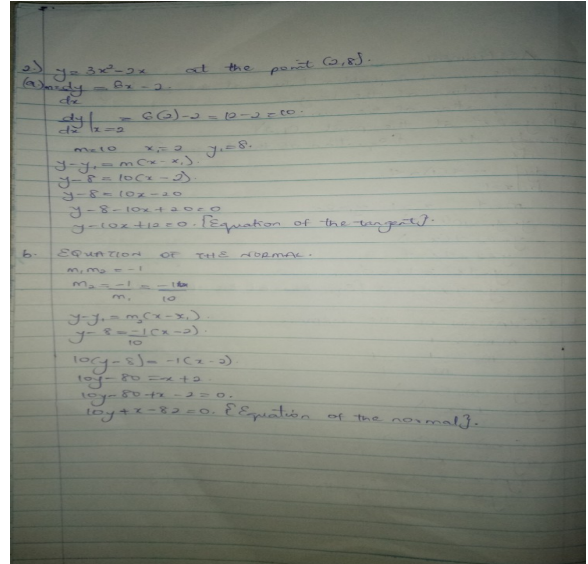 2) y = 3x² - 2x at the point (2,8).
(a) m = dy/dx = 6x - 2.
dy/dx | x=2 = 6(2) - 2 = 12 - 2 = 10.
m = 10 x₁ = 2 y₁ = 8.
y - y₁ = m(x - x₁).
y - 8 = 10(x - 2)
y - 8 = 10x - 20
y - 8 - 10x + 20 = 0
y - 10x + 12 = 0. {Equation of the tangent}.
b. EQUATION OF THE NORMAL.
m₁m₂ = -1
m₂ = -1/m₁ = -1/10
y - y₁ = m₂(x - x₁).
y - 8 = -1/10 (x - 2).
10(y - 8) = -1(x - 2)
10y - 80 = -x + 2
10y - 80 + x - 2 = 0.
10y + x - 82 = 0. {Equation of the normal}.